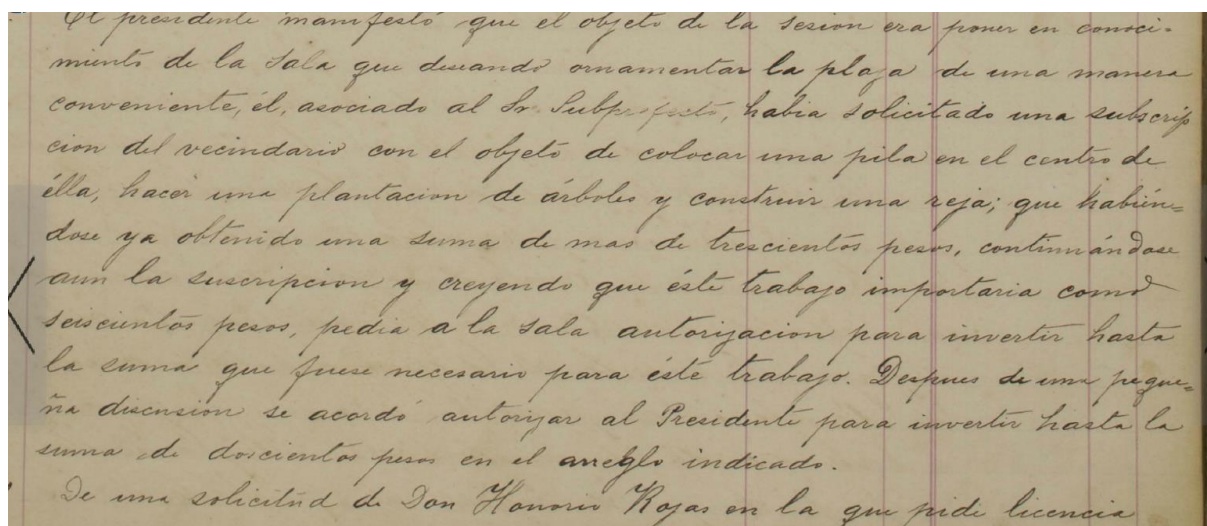 El presidente manifestó que el objeto de la sesion era poner en conoci-
miento de la Sala que deseando ornamentar la plaza de una manera
conveniente, él, asociado al Sr. Subprefecto, habia solicitado una subscrip
cion del vecindario con el objeto de colocar una pila en el centro de
élla, hacer una plantacion de árboles y construir una reja; que habién=
dose ya obtenido una suma de mas de trescientos pesos, continuándose
aun la suscripcion y creyendo que éste trabajo importaria como
seiscientos pesos, pedia a la sala autorizacion para invertir hasta
la suma que fuese necesario para éste trabajo. Despues de una peque=
ña discusion se acordó autorizar al Presidente para invertir hasta la
suma de doscientos pesos en el arreglo indicado.
De una solicitud de Don Honorio Rojas en la que pide licencia